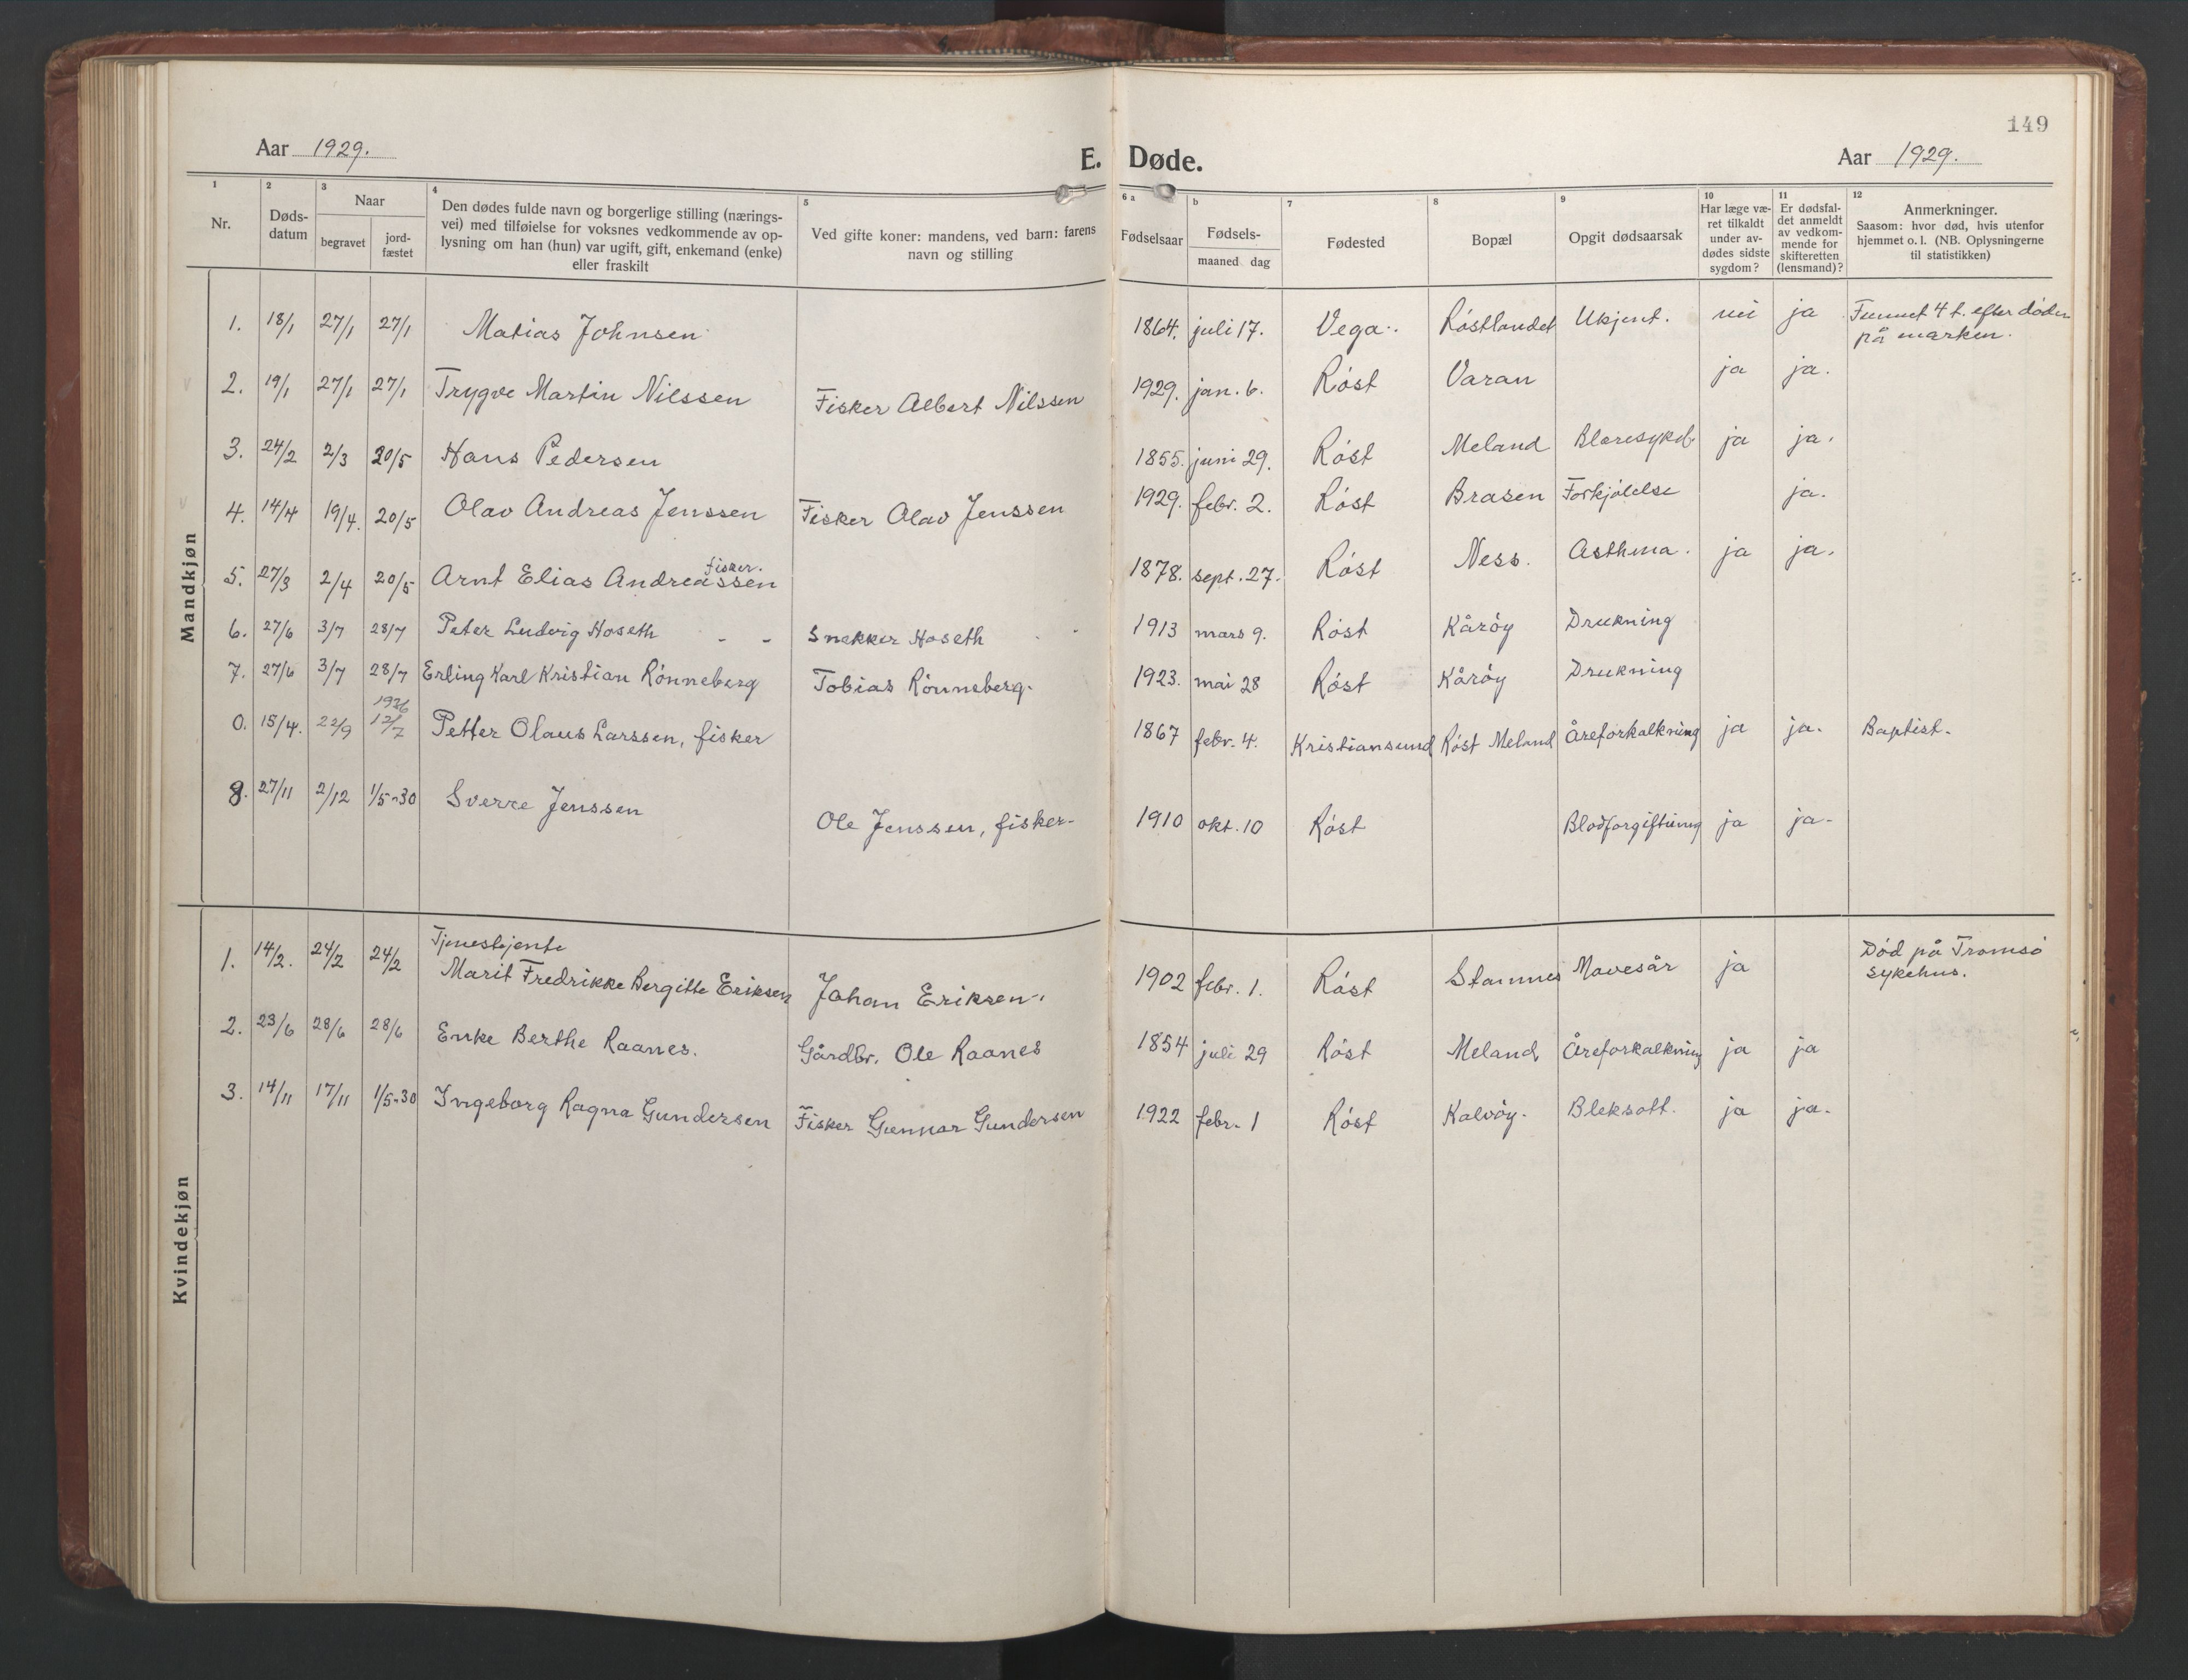 149
Aar 1929.
E. Døde.
Aar 1929.
1 2 3 4 5 6 a b 7 8 9 10 11 12
Nr.
Døds-
datum
Naar
begravet
jord-
fæstet
Den dødes fulde navn og borgerlige stilling (nærings-
vei) med tilføielse for voksnes vedkommende av op-
lysning om han (hun) var ugift, gift, enkemand (enke)
eller fraskilt
Ved gifte koner: mandens, ved barn: farens
navn og stilling
Fødselsaar
Fødsels-
maaned dag
Fødested
Bopæl
Opgit dødsaarsak
Har læge væ-
ret tilkaldt
under av-
dødes sidste
sygdom?
Er dødsfal-
det anmeldt
av vedkom-
mende for
skifteretten
(lensmand)?
Anmerkninger.
Saasom: hvor død, hvis utenfor
hjemmet o. l. (NB. Oplysningerne
til statistikken)
Mandkjøn
1. 18/1 27/1 27/1 Matias Johnsen 1864. juli 17. Vega. Røstlandet Ukjent. nei ja Funnet 4 t. efter døden
på marken.
2. 19/1 27/1 27/1 Trygve Martin Nilssen Fisker Albert Nilssen 1929. jan. 6. Røst Varan ja ja.
3. 24/2 2/3 20/5 Hans Pedersen 1855. juni 29. Røst Meland Blæresykd. ja ja.
4. 14/4 19/4. 20/5 Olav Andreas Jenssen Fisker Olav Jenssen 1929. febr. 2. Røst Brasen Forkjølelse ja.
fisker.
5. 27/3 2/4 20/5 Arnt Elias Andreassen 1878. sept. 27. Røst Ness. Asthma. ja ja.
6. 27/6 3/7 28/7 Peter Ludvig Hoseth - - Snekker Hoseth 1913 mars 9. Røst Kårøy Drukning
7. 27/6 3/7 28/7 Erling Karl Kristian Rønneberg Tobias Rønneberg. 1923. mai 28 Røst Kårøy Drukning
1936
0. 15/4. 22/9 12/7 Petter Olaus Larssen, fisker 1867 febr. 4. Kristiansund Røst Meland Åreforkalkning ja ja. Baptist.
8. 27/11 2/12 1/5-30 Sverre Jenssen Ole Jenssen, fisker- 1910 okt. 10 Røst Blodforgiftning ja ja-
Kvindekjøn
Tjenestejente
1. 14/2. 24/2 24/2 Marit Fredrikke Bergitte Eriksen Johan Eriksen. 1902 febr. 1. Røst Stamnes Mavesår ja Død på Tromsø
sykehus.
2. 23/6 28/6 28/6 Enke Berthe Raanes. Gårdbr. Ole Raanes 1854 juli 29 Røst Meland Åreforkalkning ja ja
3. 14/11 17/11 1/5-30 Ingeborg Ragna Gundersen Fisker Gunnar Gundersen 1922 febr. 1 Røst Kalvøy. Bleksott. ja ja.